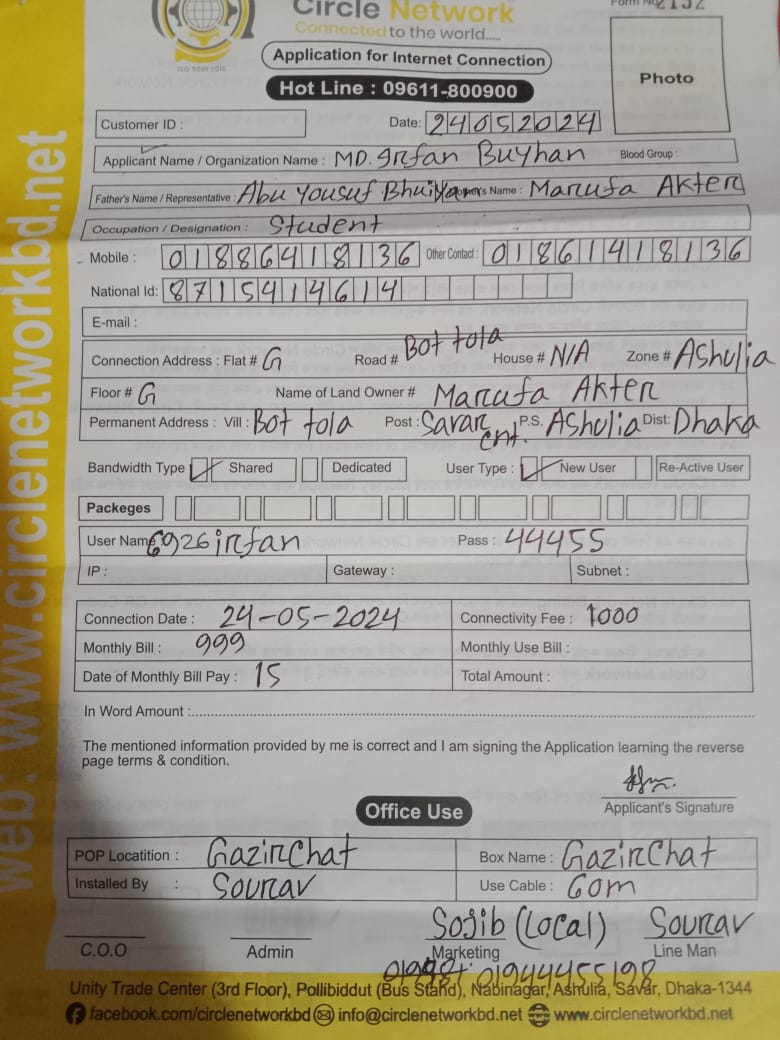 Circle Network
Form No 2132
Connected to the world.....
ISO 9001:2015
Application for Internet Connection
Hot Line : 09611-800900
Photo
Customer ID :
Date: 24052024
Applicant Name / Organization Name : MD. Irfan Buyhan Blood Group :
Father's Name / Representative : Abu Yousuf Bhuiya Mother's Name : Marufa Akter
Occupation / Designation : Student
Mobile : 01886418136 Other Contact : 01861418136
National Id: 8715414614
E-mail :
Connection Address : Flat # G Road # Bot tola House # N/A Zone # Ashulia
Floor # G Name of Land Owner # Marufa Akter
Permanent Address : Vill : Bot tola Post : Savar cnt. P.S. Ashulia Dist: Dhaka
Bandwidth Type Shared Dedicated User Type : New User Re-Active User
Packeges
User Name : 6926irfan Pass : 44455
IP : Gateway : Subnet :
Connection Date : 24-05-2024 Connectivity Fee : 1000
Monthly Bill : 999 Monthly Use Bill :
Date of Monthly Bill Pay : 15 Total Amount :
In Word Amount :
The mentioned information provided by me is correct and I am signing the Application learning the reverse
page terms & condition.
Applicant's Signature
Office Use
POP Locatition : Gazirchat Box Name : Gazirchat
Installed By : Sourav Use Cable : 60m
Sojib (Local) Sourav
C.O.O Admin Marketing Line Man
01944455198
Unity Trade Center (3rd Floor), Pollibiddut (Bus Stand), Nabinagar, Ashulia, Savar, Dhaka-1344
facebook.com/circlenetworkbd info@circlenetworkbd.net www.circlenetworkbd.net
web: www.circlenetworkbd.net